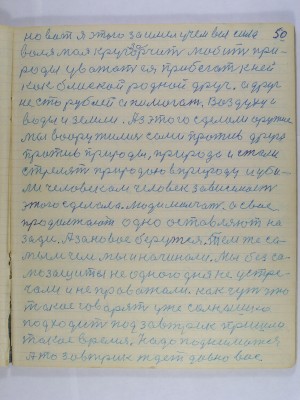 50
новат я этого зашли учем вся сила
воля моя кругом чит любить при-
роды уважат ея прибегат к ней
как близкой родной друг. и друг
не сто рублей а помогат. Воздуху и
воды и земли. Аз этого сделали оружие
мы вооружились сами против друга
против природы, природа и стали
стрелят природою в природу и уби-
ли человеком человек зависимост
этого сделали. Люди молчат. а свое
продолжают одно оставляют на
зади. А за новое берутся. Тем же са-
мым чем мы и начинали. Мы без са-
мозащиты не одного дня не устре-
чали и не проважали. как чут это
такое говарят уже солнышко
подходит под завтрик пришло
такое время, надо подниматся
А то завтрик ждет давно вас